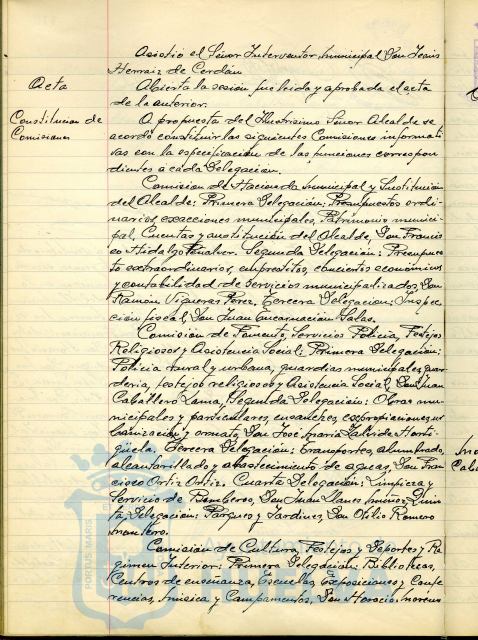 Asistió el Señor Interventor municipal Don Jesús
Herraiz de Cerdán
Acta
Abierta la sesión fue leida y aprobada el acta
de la anterior.
Constitución de
Comisiones
A propuesta del Illustrisimo Señor Alcalde se
acordó constituir las siguientes Comisiones informati
vas con la especificación de las funciones correspon
dientes a cada Delegación.
Comisión de Hacienda municipal y Sustitución
del Alcalde: Primera Delegación: Presupuestos ordi
narios, exacciones municipales, Patrimonio munici
pal, Cuentas y sustitución del Alcalde, Don Francis
co Hidalgo. Segunda Delegación: Presupues
to extraordinarios, emprestitos, conciertos económicos
y contabilidad de Servicios municipalizados, Don
Ramón Vigueras Pérez, Tercera Delegación: Inspec
ción fiscal, Don Juan Encarnación Salas.
Comisión de Fomento, Servicios Policia, Festejos
Religiosos y Asistencia Social: Primera Delegación:
Policia rural y urbana, guardias municipales guar
deria, festejos religiosos y Asistencia Social, Don Juan
Caballero Lama, Segunda Delegación: Obras mu
nicipales y particulares, ensanches, expropiaciones ur
banización y ornato, Don José Maria Horti
güela, Tercera Delegación: transportes, alumbrado,
alcantarillado y abastecimiento de aguas, Don Fran
cisco Ortiz Ortiz. Cuarta Delegación: Limpieza y
Servicio de Bomberos, Don Juan Llanes Muñoz, Quin
ta Delegación: Parques y Jardines, Don Otilio Romero
Montero.
Comisión de Cultura, Festejos y Deportes y Re
gimen Interior: Primera Delegación: Bibliotecas,
Centros de enseñanza, Escuelas, Exposiciones y Confe
rencias, música y Campamentos, Don Horacio Moreno
PORTUS MARIS